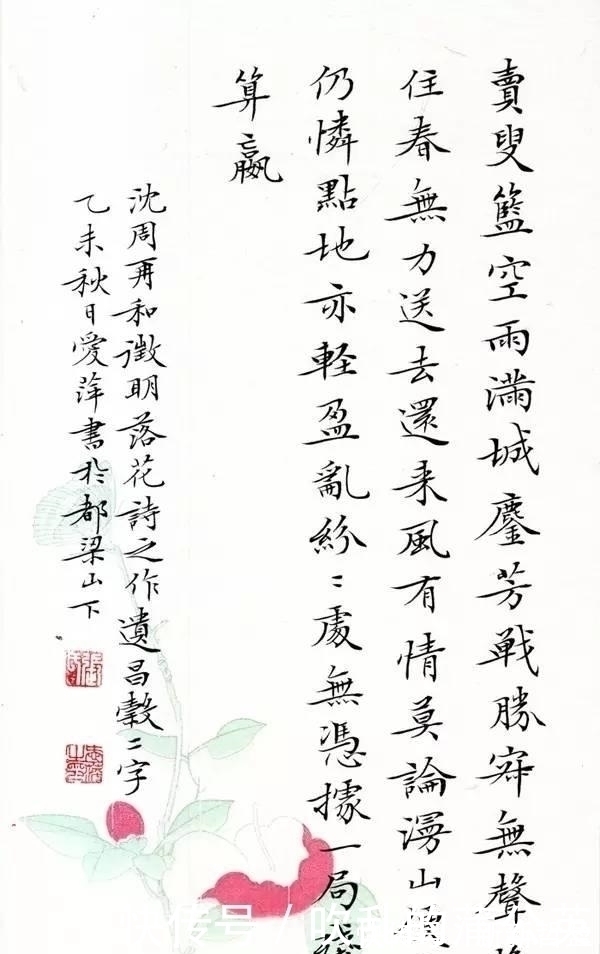 賣叟籃空雨滿城鏖芳戰勝寂無聲
住春無力送去還來風有情莫論漫山
仍憐點地亦輕盈亂紛〻處無憑據一局
算贏
沈周再和徵明落花詩之作遺昌穀二字
乙未秋日愛萍書於都梁山下